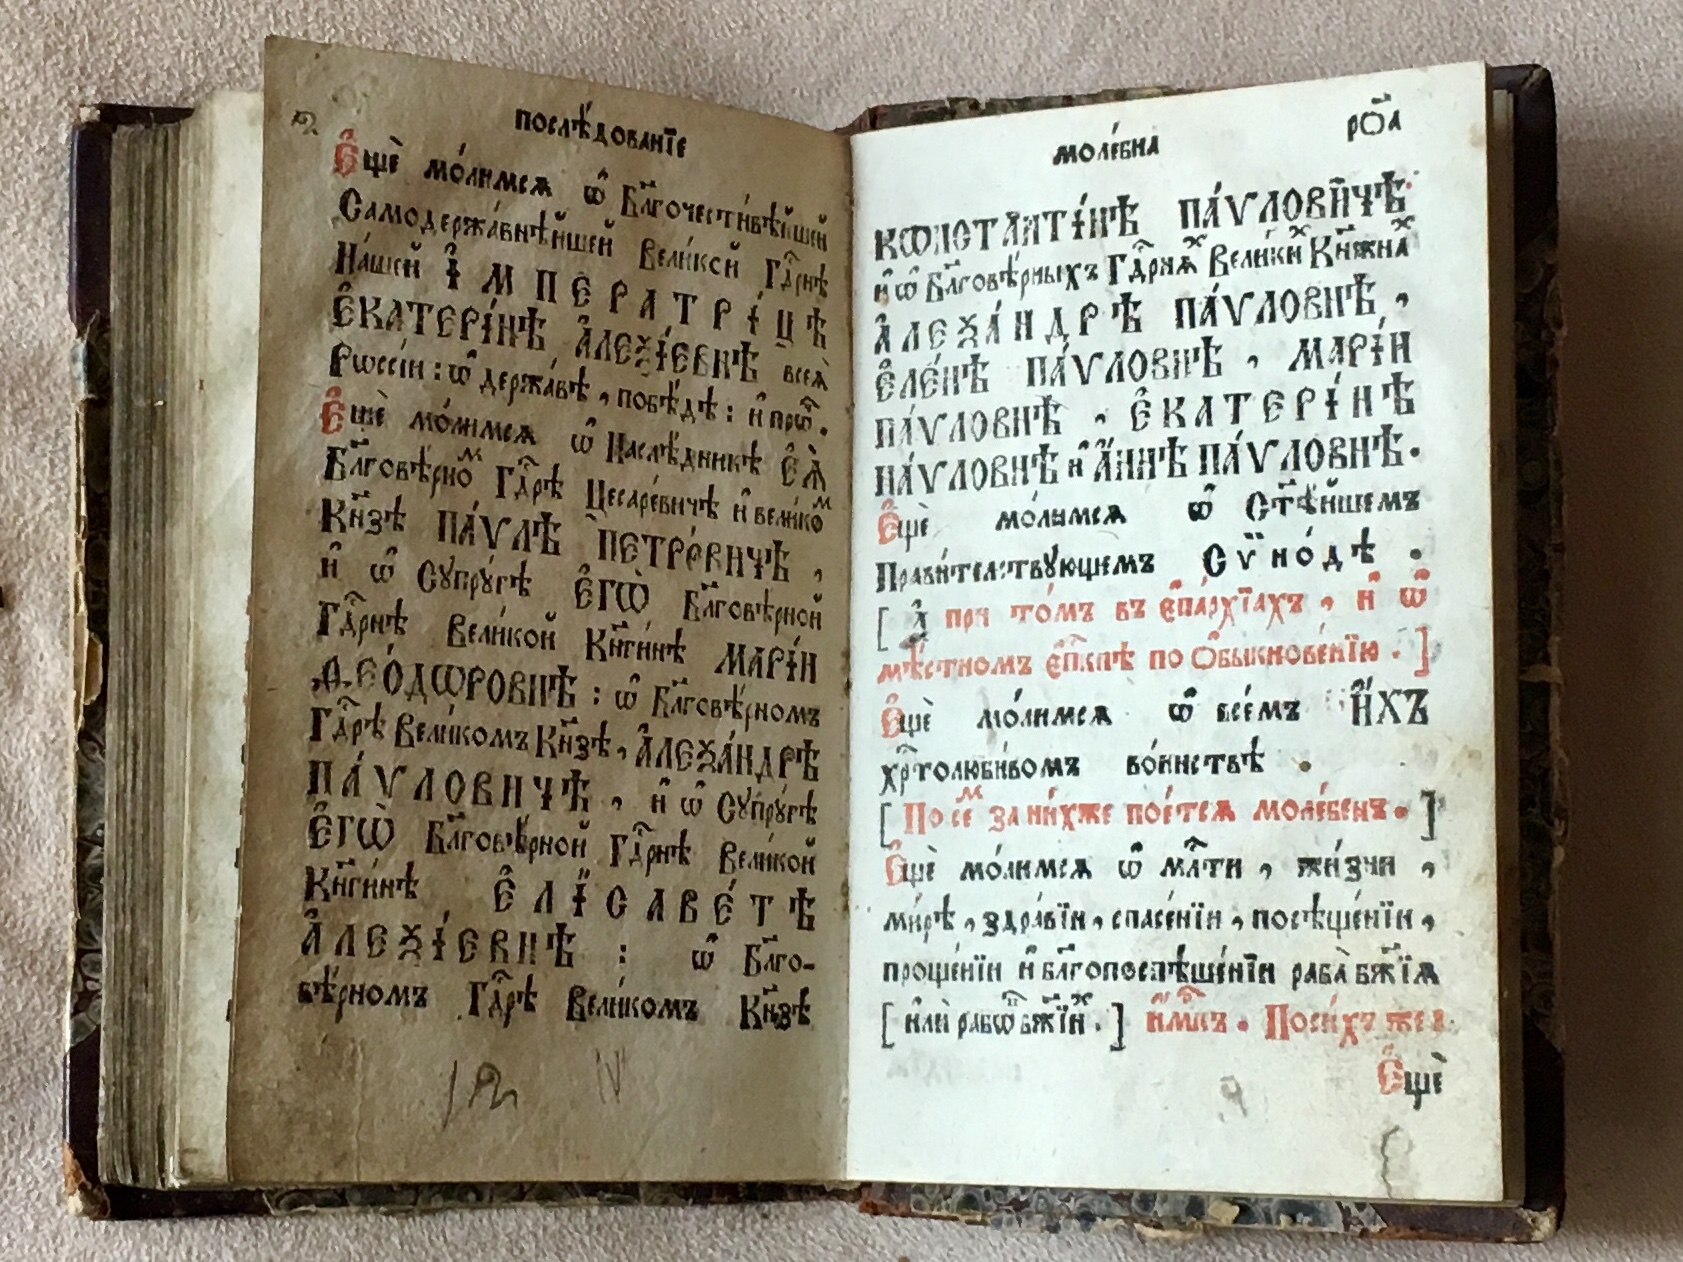 послѣ́дованїе
Є҆щѐ мо́лимсѧ ѡ҆ Бл҃гочести́вѣйшей
Самодержа́внѣйшей Вели́кой Гдⷭ҇рнѣ
На́шей І҆МПЕРАТРІ́ЦѢ
Є҆КАТЕРІ́НѢ А҆ЛЕѮІ́ЕВНѢ всеѧ̀
Рѡссі́и : ѡ҆ держа́вѣ , побѣ́дѣ : и҆ прѡⷱ҇ .
Є҆щѐ мо́лимсѧ ѡ҆ Наслѣ́дникѣ Є҆Ѧ̀
Бл҃говѣ́рноⷨ Гдⷭ҇рѣ Цесаре́вичѣ и҆ вели́коⷨ
Кн҃зѣ ПА́ѴЛѢ ПЕТРО́ВИЧѢ ,
и҆ ѡ҆ Сꙋпрꙋ́гѣ Є҆ГѠ̀ Бл҃говѣ́рной
Гдⷭ҇рнѣ Вели́кой Кн҃ги́нѣ МАРІ́И
Ѳ҆ЕО́ДѠРОВНѢ : ѡ҆ Бл҃говѣ́рномъ
Гдⷭ҇рѣ Вели́комъ Кн҃зѣ , А҆ЛЕѮА́НДРѢ
ПА́ѴЛОВИЧѢ , и҆ ѡ҆ Сꙋпрꙋ́гѣ
Є҆ГѠ̀ Бл҃говѣ́рной Гдⷭ҇рнѣ Вели́кой
Кн҃ги́нѣ Є҆ЛІСАВЕ́ТѢ
А҆ЛЕѮІ́ЕВНѢ : ѡ҆ Бл҃го-
вѣ́рномъ Гдⷭ҇рѣ Вели́комъ Кн҃зѣ
моле́бна
ро҃а
КѠНСТАНТІ́НѢ ПА́ѴЛОВИЧѢ
и҆ ѡ҆ Бл҃говѣ́рныхъ Гдⷭ҇рнѧⷯ Вели́киⷯ Кн҃жнаⷯ
А҆ЛЕѮА́НДРѢ ПА́ѴЛОВНѢ ,
Є҆ЛЕ́НѢ ПА́ѴЛОВНѢ , МАРІ́И
ПА́ѴЛОВНѢ , Є҆КАТЕРІ́НѢ
ПА́ѴЛОВНѢ и҆ А҆́ННѢ ПА́ѴЛОВНѢ .
Є҆щѐ мо́лимсѧ ѡ҆ Ст҃ѣ́йшемъ
Прави́тельствꙋющемъ Сѷно́дѣ .
[ А҆ при то́мъ въ є҆па́рхїахъ , и҆ ѡ҆
мѣ́стномъ є҆пⷭ҇кпѣ по Ѻ҆быкнове́нїю . ]
Є҆щѐ мо́лимсѧ ѡ҆ все́мъ И҆́ХЪ
хрⷭ҇толюби́вомъ во́инствѣ .
[ По се́ⷨ за ни́хже пое́тсѧ моле́бенъ . ]
Є҆щѐ мо́лимсѧ ѡ҆ млⷭ҇ти , жи́зни ,
ми́рѣ , здра́вїи , спасе́нїи , посѣще́нїи ,
проще́нїи и҆ бл҃гопоспѣше́нїи раба̀ бж҃їѧ
[ и҆лѝ рабѡ́въ бж҃їиⷯ . ] и҆́мⷬ҇къ . По си́хъ же
Є҆щѐ